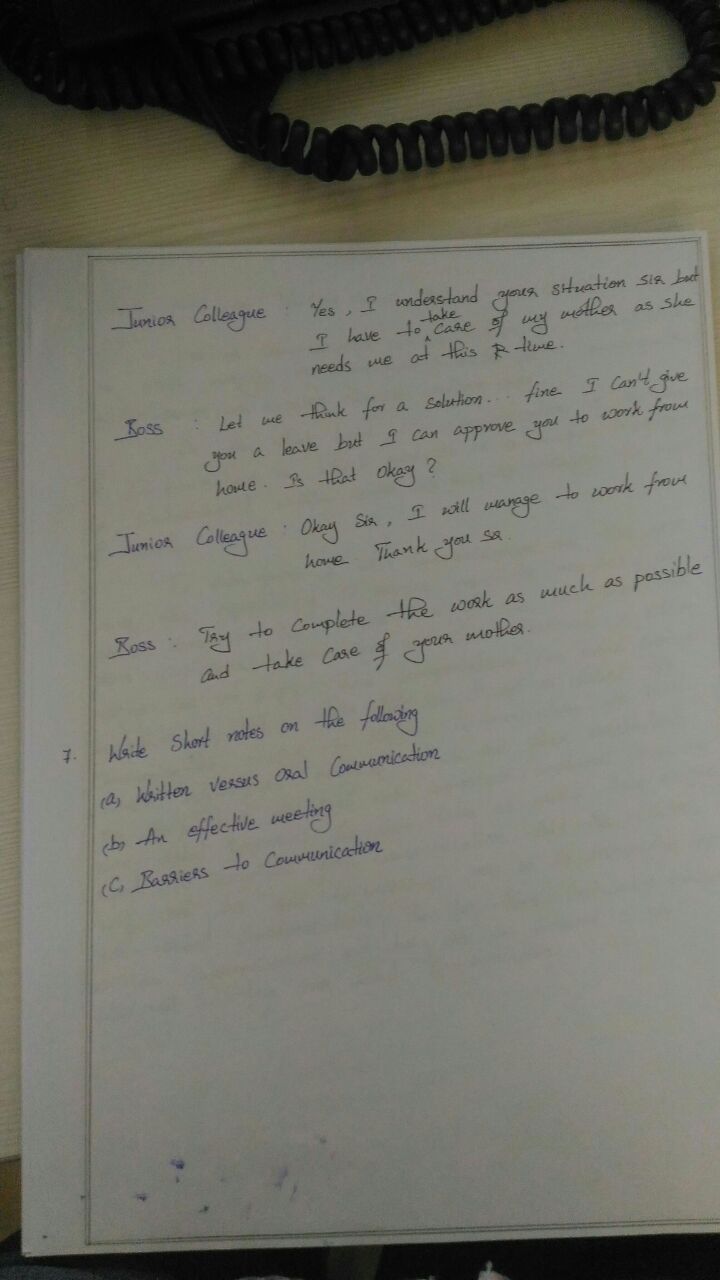 Junior Colleague : Yes, I understand your situation sir but
I have to take care of my mother as she
needs me at this time.
Boss : Let me think for a solution... fine I can't give
you a leave but I can approve you to work from
home. Is that okay?
Junior Colleague : Okay Sir, I will manage to work from
home. Thank you sir.
Boss : Try to complete the work as much as possible
and take care of your mother.
7. Write short notes on the following
(a) Written versus Oral Communication
(b) An effective meeting
(c) Barriers to Communication